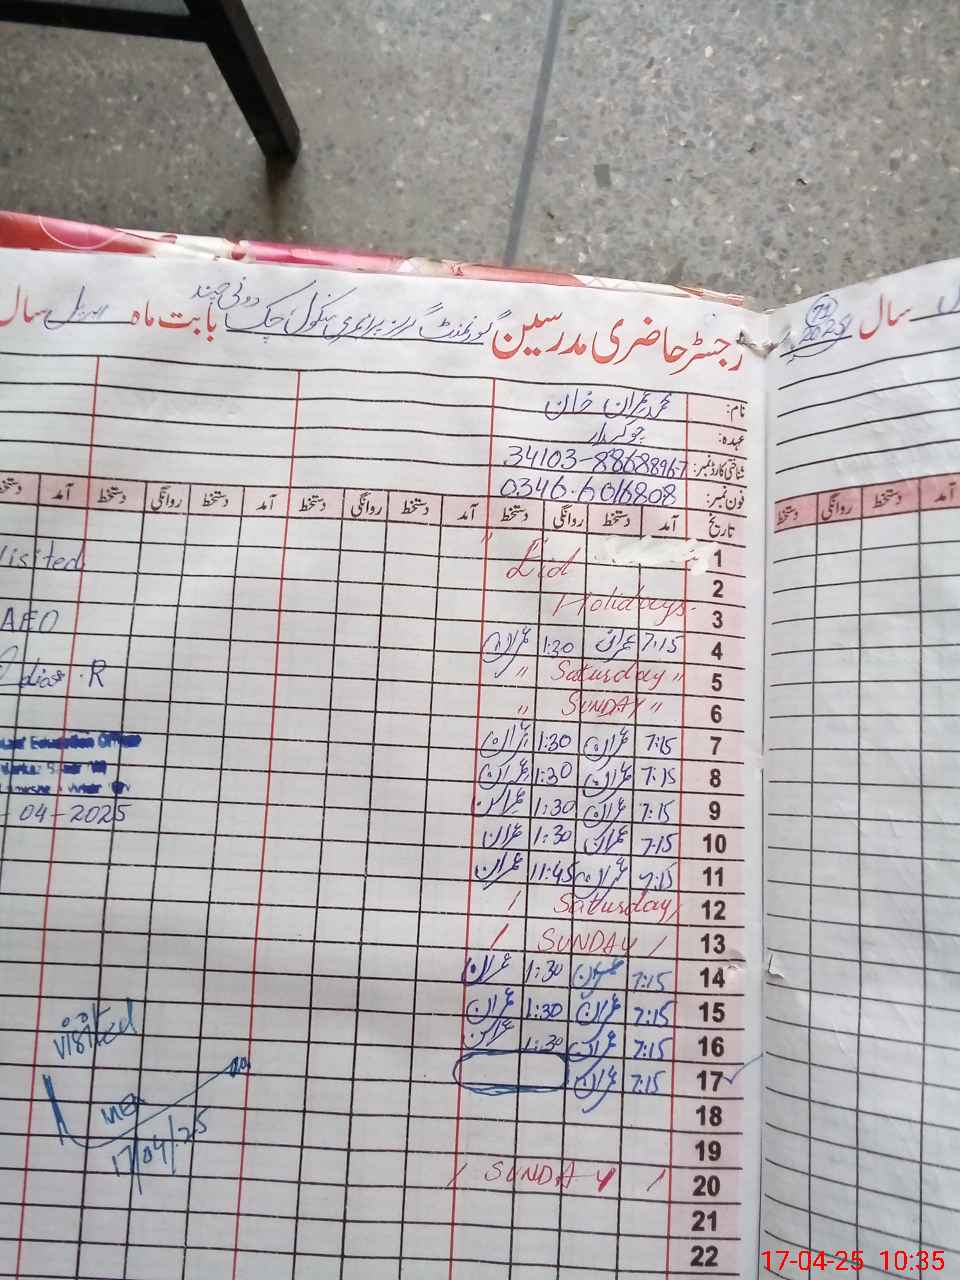 رجسٹر حاضری مدرسین گورنمنٹ گرلز پرائمری سکول چک دونی چند بابت ماہ اپریل سال
سال
2025
نام: محمد عمران خان
عہدہ: چوکیدار
شناختی کارڈ نمبر: 34103-8868896-7
فون نمبر: 0346-6016808
تاریخ آمد دستخط روانگی دستخط آمد دستخط روانگی دستخط آمد دستخط روانگی دستخط آمد دستخط
آمد دستخط روانگی دستخط
1
Eid
2
Holidays.
3
4 7:15 عمران 1:30 عمران
5 " Saturday "
6 " SUNDAY "
7 7:15 عمران 1:30 عمران
8 7:15 عمران 1:30 عمران
9 7:15 عمران 1:30 عمران
10 7:15 عمران 1:30 عمران
11 7:15 عمران 11:45 عمران
12 / Saturday /
13 / SUNDAY /
14 7:15 عمران 1:30 عمران
15 7:15 عمران 1:30 عمران
16 7:15 عمران 1:30 عمران
17 7:15 عمران
18
19
20 / SUNDAY /
21
22
Visited
AEO
R
Education Officer
-04-2025
Visited
MEA
17/04/25
17-04-25 10:35